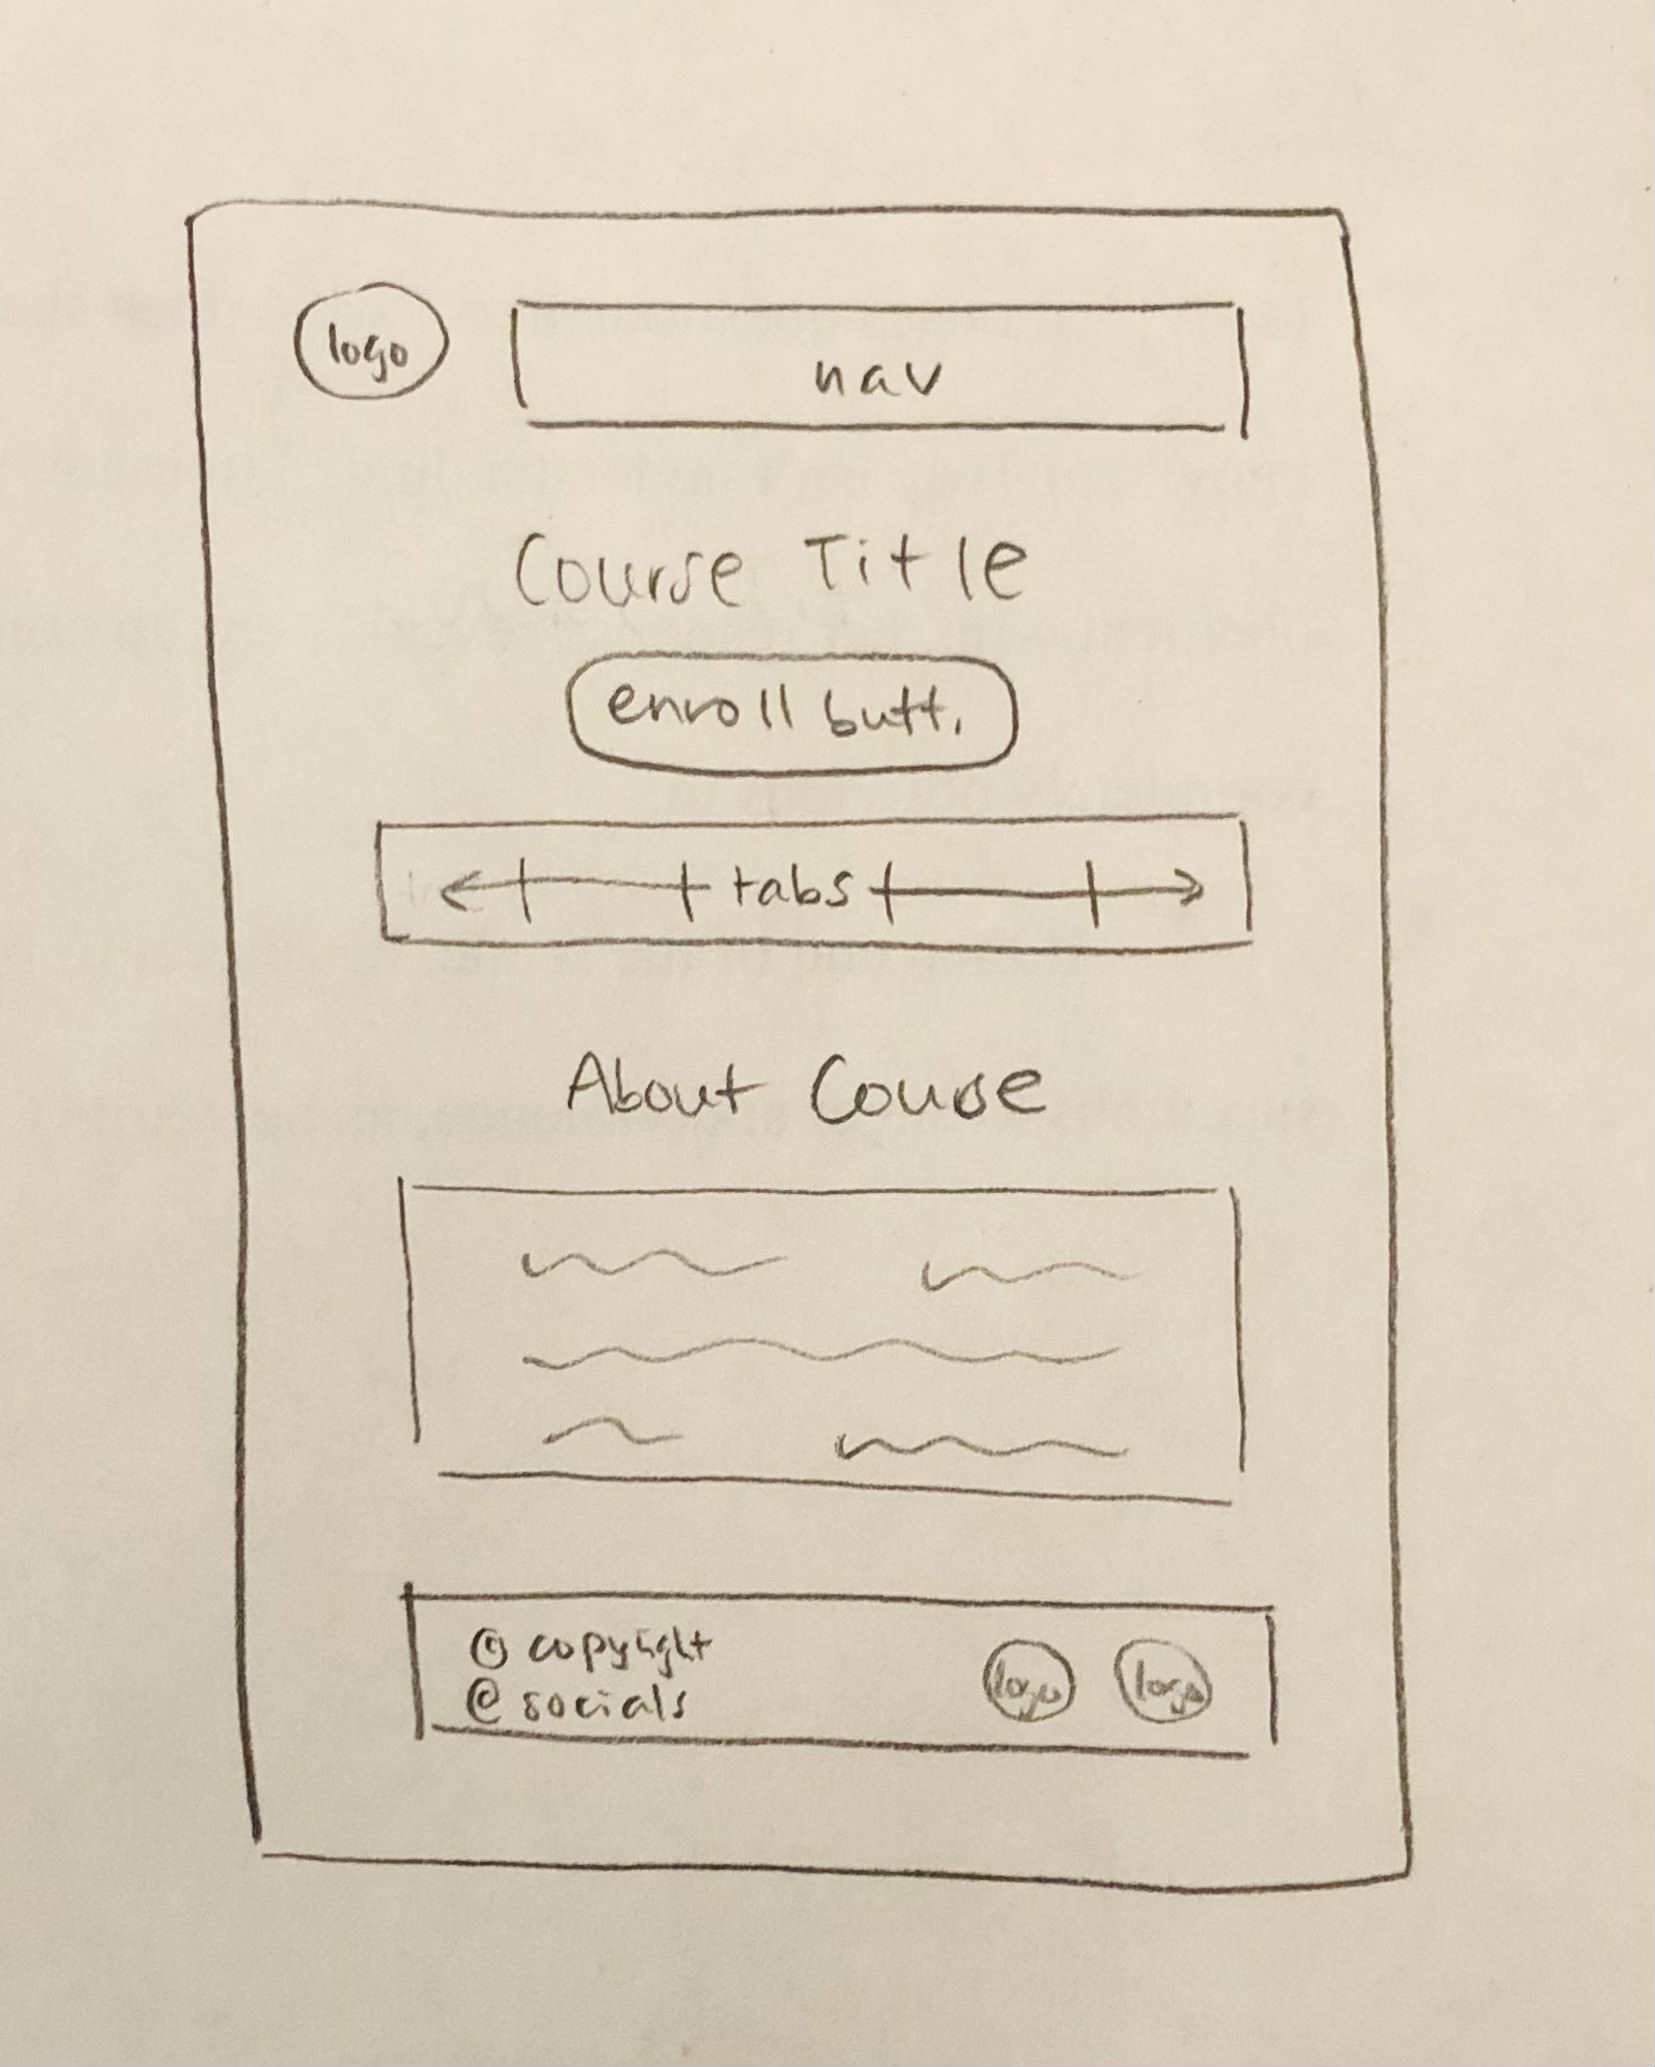 logo
nav
Course Title
enroll butt.
tabs
About Course
© copyright
@ socials
logo logo